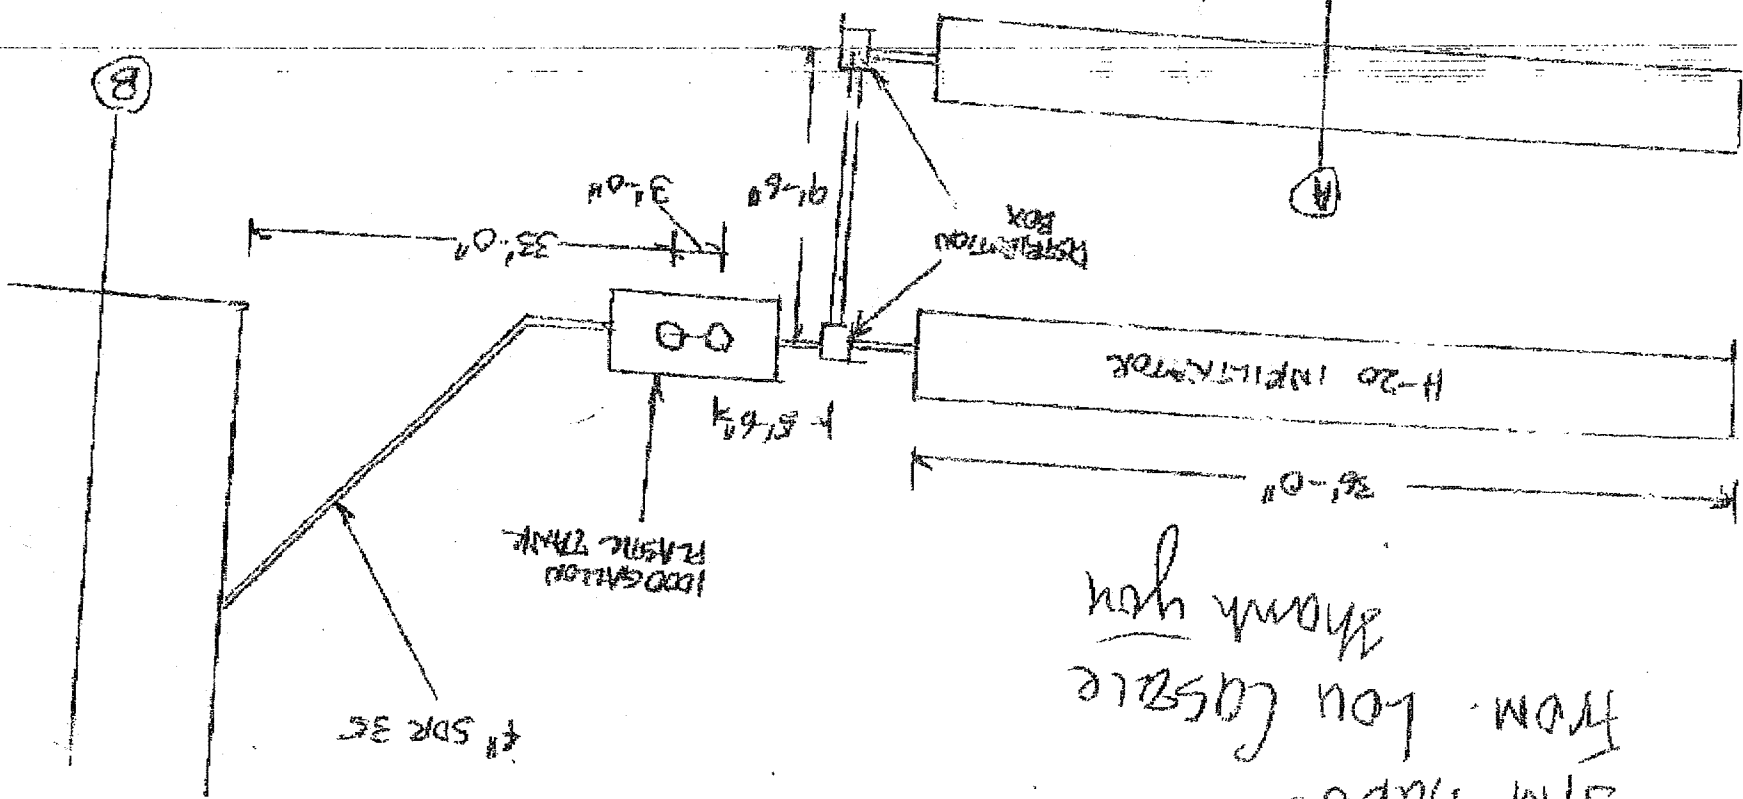 From. Lou Casale
Thank you
4" SDR 35
1000 GALLON
PLASTIC TANK
36'-0"
5'-6"
H-20 INFILTRATOR
DISTRIBUTION
BOX
33'-0"
3'-0"
9'-6"
A
B